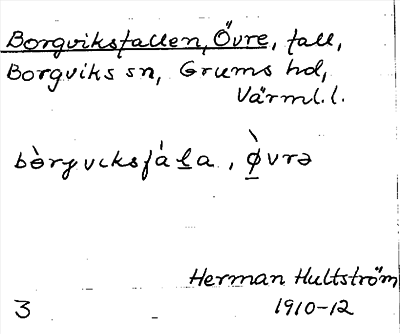 Borgviksfallen, Övre, fall,
Borgviks sn, Grums hd,
Värml. l.
bòrgvıksfáḻa, ø̱̀vrə
Herman Hultström
3 1910-12